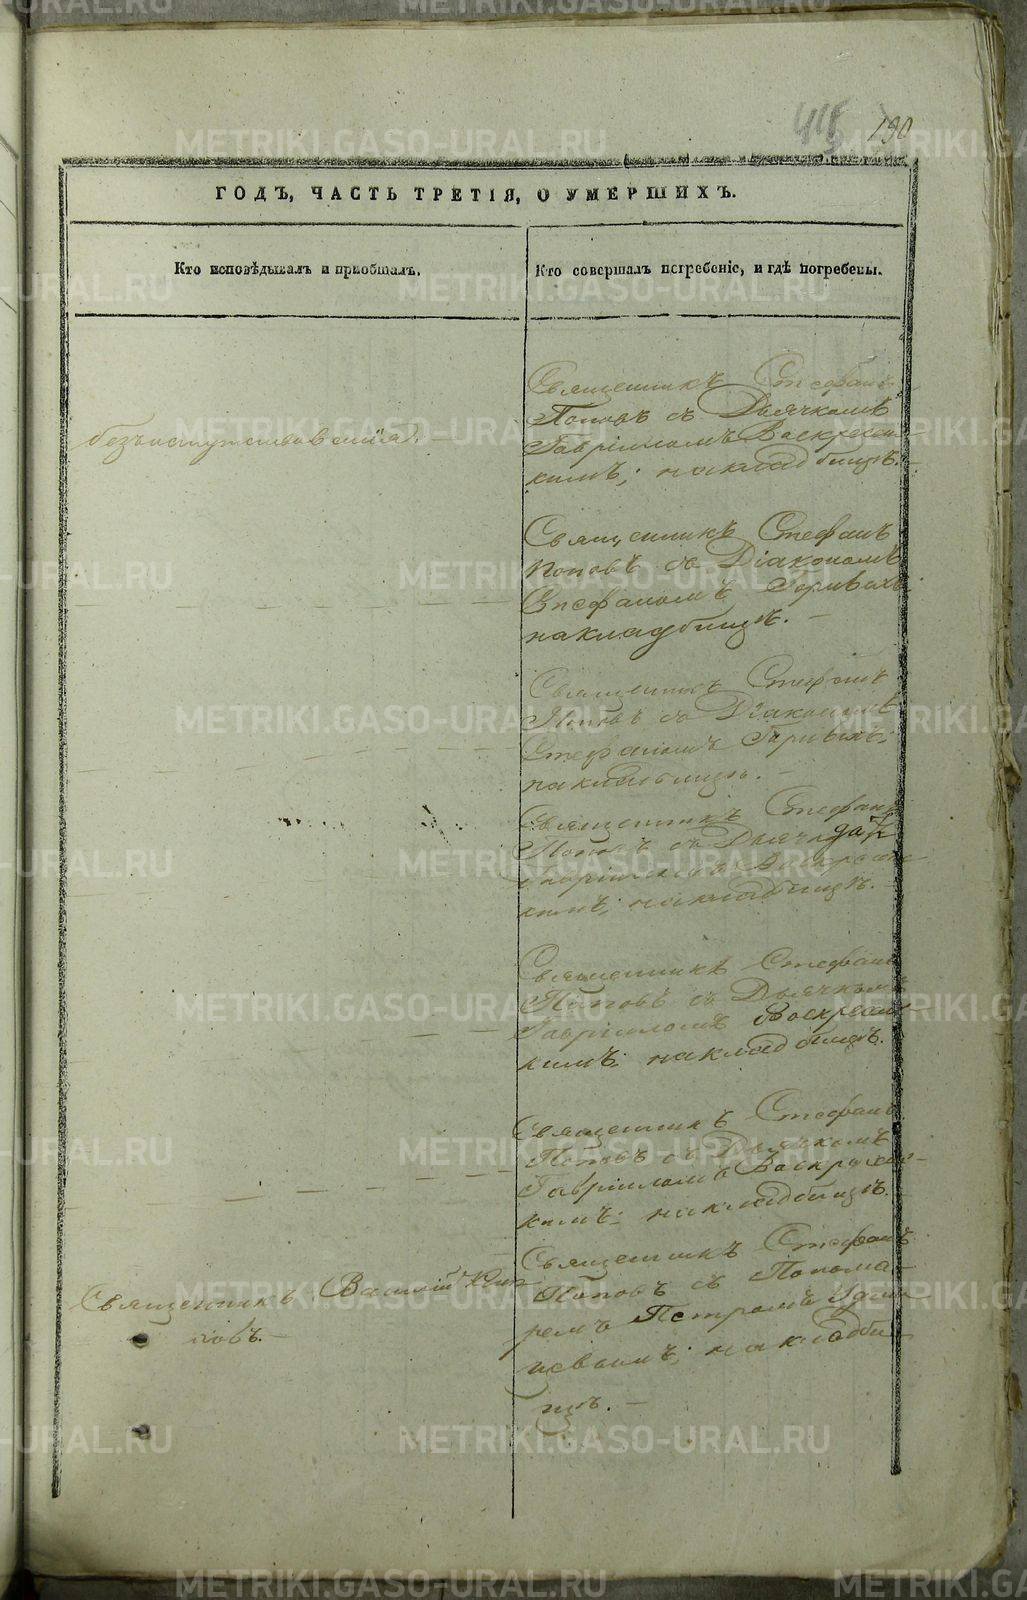 190
ГОДЪ, ЧАСТЬ ТРЕТІЯ, О УМЕРШИХЪ.
Кто исповѣдывалъ и пріобщалъ.
Кто совершалъ погребеніе, и гдѣ погребены.
Священникъ Стефанъ
Поповъ съ Дьячкомъ
Гавріиломъ Воскресен-
кимъ; на кладбищѣ.-
безъ напутствованія. -
Священникъ Стефанъ
Поповъ съ Діакономъ
Стефаномъ
на кладбищѣ. -
Священникъ Стефанъ
Поповъ съ Діакономъ
Стефаномъ
на кладбищѣ. -
Священникъ Стефанъ
Поповъ съ
Гавріиломъ Воскресен-
кимъ; на кладбищѣ. -
Священникъ Стефанъ
Поповъ съ Дьячкомъ
Гавріиломъ Воскресен-
кимъ; на кладбищѣ.
Священникъ Стефанъ
Поповъ съ Дьячкомъ
Гавріиломъ Воскресен-
кимъ; на кладбищѣ.
Священникъ Стефанъ
Поповъ съ Понома-
ремъ Петромъ
на кладби-
щѣ. -
Священникъ Василій
ковъ. -
METRIKI.GASO-URAL.RU